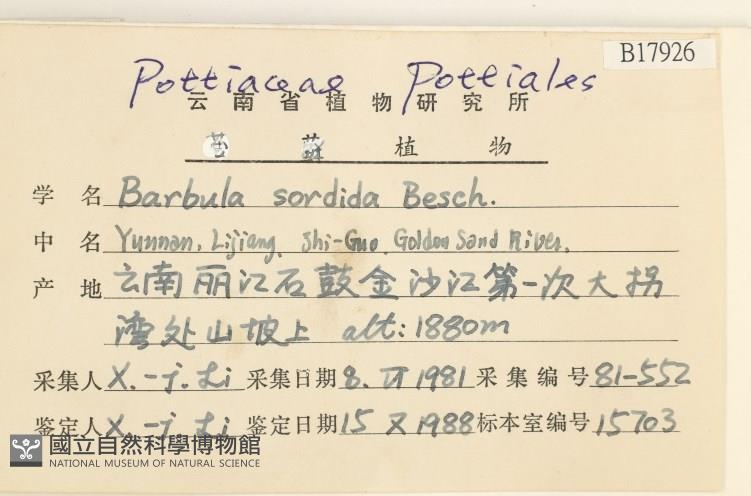 B17926
Pottiaceae Pottiales
云南省植物研究所
苔藓植物
学名 Barbula sordida Besch.
中名 Yunnan, Lijiang, Shi-Guo, Golden Sand River,
产地 云南丽江石鼓金沙江第一次大拐
湾处山坡上 alt: 1880m
采集人 X.-j. Li 采集日期 8. VI 1981 采集编号 81-552
鉴定人 X.-j. Li 鉴定日期 15 X 1988 标本室编号 15703
國立自然科學博物館
NATIONAL MUSEUM OF NATURAL SCIENCE